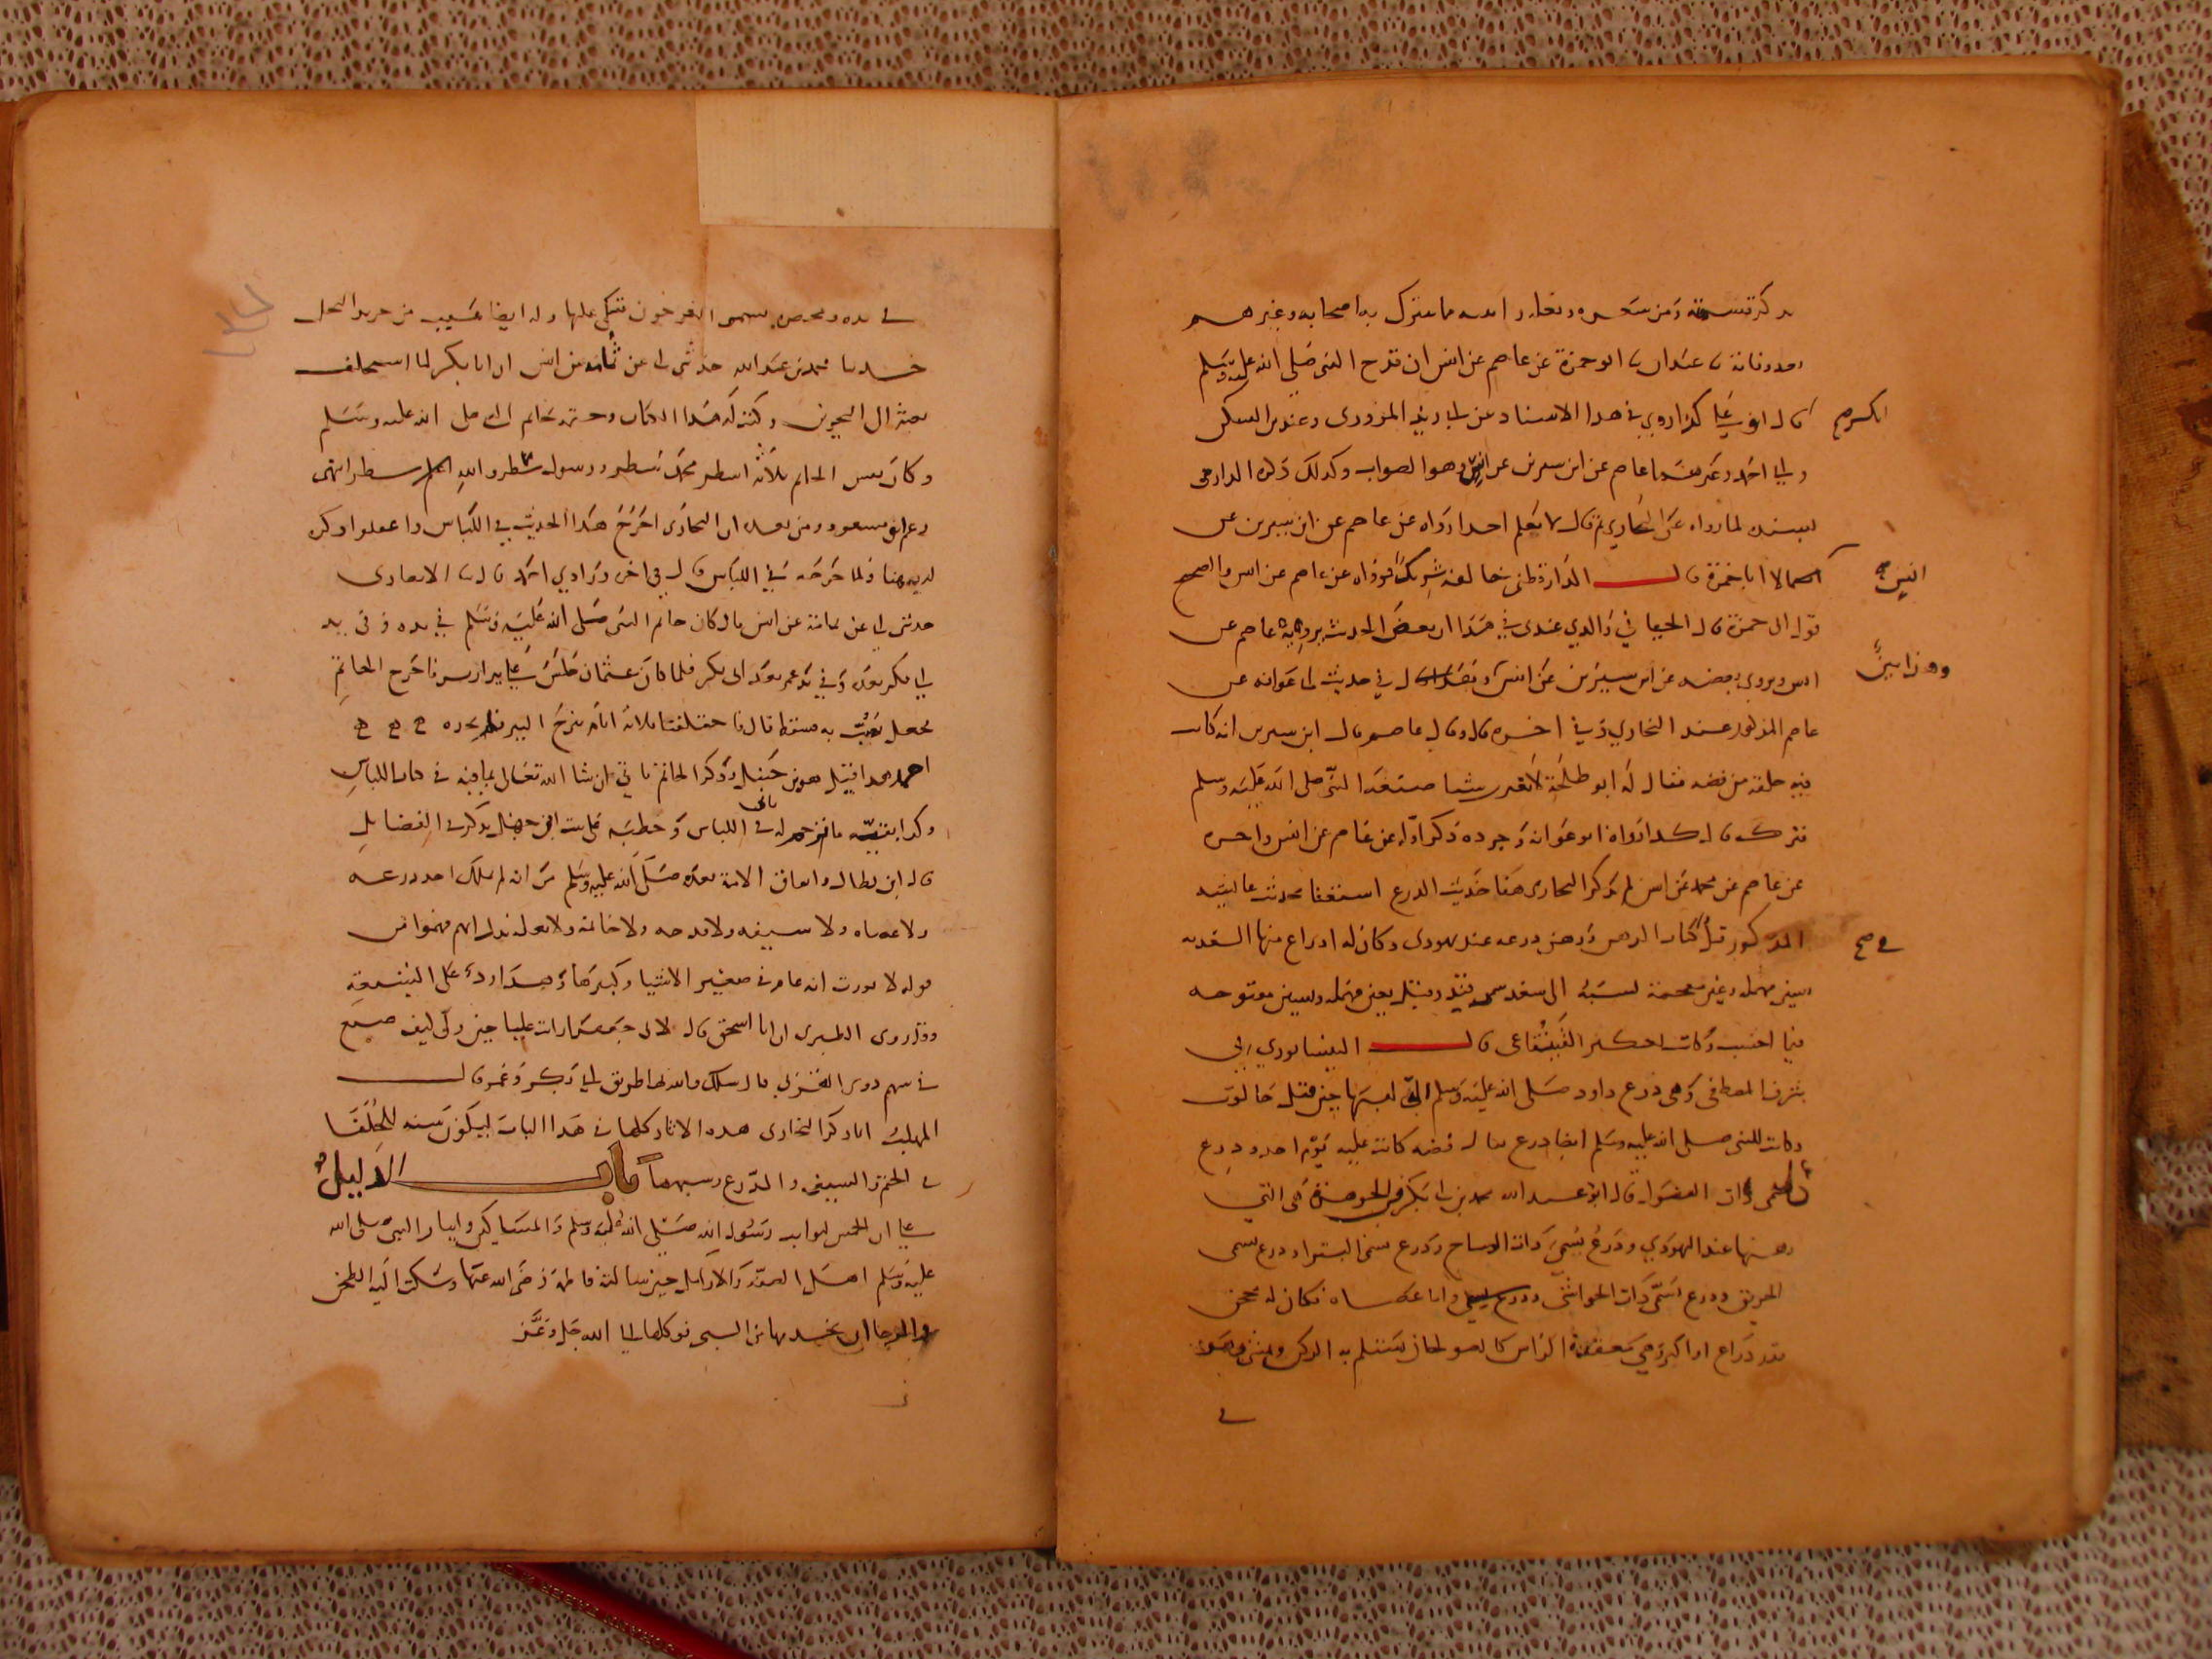 يذكر قسمته ومن شعره ونعله وانيته مما يتبرك به اصحابه وغيرهم
بعد وفاته نا عبدان نا ابو حمزة عن عاصم عن انس ان قدح النبي صلى الله عليه وسلم
انكسر صح
قال ابو علي كذا روي في هذا الاسناد عن ابي زيد المروزي وعند ابن السكن
وابي احمد وغيرهما عاصم عن ابن سيرين عن انس وهو الصواب وكذلك ذكره الدارقطني
بسنده لما رواه عن البخاري ثم قال لا نعلم احدا رواه عن عاصم عن ابن سيرين عن
انس صح
الا ابا حمزة قال الدارقطني خالفه شريك فرواه عن عاصم عن انس والصحيح
قول ابي حمزة قال الجياني والذي عندي في هذا ان بعض الحديث يرويه عاصم عن
انس ويروي بعضه عن ابن سيرين عن انس قال في حديث ابي عوانة عن
وهذا بين
عاصم المذكور عند البخاري وفي اخره قال وقال عاصم قال ابن سيرين انه كان
فيه حلقة من فضه فقال له ابو طلحة لا تغير شيئا صنعه النبي صلى الله عليه وسلم
فتركه قال كذا رواه ابو عوانه وجوده ذكر اوله عن عاصم عن انس واخره
عن عاصم عن محمد عن انس لم يذكر البخاري هنا حديث الدرع استغنا بحديث عائشه
المذكور قبل كتاب الرهن ورهن درعه عند يهودي وكان له ادراع منها السغديه
في صح
بسين مهمله وغين معجمة نسبة الى سغد سمرقند وقيل بعين مهمله وسين مفتوحه
فيما احسب وكانت لعكير القينقاعي قال النيسابوري في
شرف المصطفى وهي درع داود صلى الله عليه وسلم التي لبسها حين قتل جالوت
وكانت للنبي صلى الله عليه وسلم ايضا درع يقال فضه كانت عليه يوم احد ودرع
تسمى ذات الفضول قال ابو عبد الله محمد بن ابي بكر في الجوهرة هي التي
رهنها عند اليهودي ودرع تسمى ذات الوشاح ودرع تسمى البتراء ودرع تسمى
الخرنق ودرع تسمى ذات الحواشي واما عصاه فكان له محجن
قدر ذراع او اكثر وهي معقفة الراس كالصولجان يستلم به الركن ويمشي وهو
في
في يده ومخصره يسمى العرجون يتكي عليها وله ايضا عسيب من جريد النخل
نا محمد بن عبد الله حدثني ابي عن ثمامه عن انس ان ابا بكر لما استخلف
بعثه الى البحرين وكتب له هذا الكتاب وختمه بخاتم النبي صلى الله عليه وسلم
وكان نقش الخاتم ثلاثه اسطر محمد سطر ورسول سطر والله سطر انتهى
زعم ابو مسعود ومن بعده ان البخاري اخرج هذا الحديث في اللباس واغفلوا ذكره
له هنا ولما خرجه في اللباس قال في اخره وزادني احمد قال نا الانصاري
حدثني ابي عن ثمامة عن انس قال كان خاتم النبي صلى الله عليه وسلم في يده وفي يد
ابي بكر بعده وفي يد عمر بعد ابي بكر فلما كان عثمان جلس على بير اريس فاخرج الخاتم
فجعل يعبث به فسقط قال فاختلفنا ثلاثة ايام ننزح البير فلم نجده
احمد هذا قيل هو بن حنبل وذكر الخاتم ياتي ان شا الله تعالى بما فيه في كتاب اللباس
وكذا بقية ما ترجم له ياتي في اللباس
قال ابن بطال واتفاق الامة بعده صلى الله عليه وسلم على انه لم يملك احد درعه
ولا عصاه ولا سيفه ولا قدحه ولا خاتمه ولا نعله يدل انهم فهموا من
قوله لا نورث انه عام في صغير الاشيا وكبيرها وهذا رد على الشيعة
وقد روى الطبري ان ابا اسحق قال لابي جعفر ارايت عليا حين ولي كيف صنع
في سهم ذوي القربى قال سلك والله بها طريق ابي بكر وعمر قال
المهلب انما ذكر البخاري هذه الاثار كلها في هذا الباب ليكون سنه للخلفا
في الختم والسيف والدرع وسبهها باب الدليل
على ان الخمس لنوايب رسول الله صلى الله عليه وسلم والمساكين وايثار النبي صلى الله
عليه وسلم اهل الصفة والارامل حين سالته فاطمة رضي الله عنها وشكت اليه الطحن
والرحا ان يخدمها من السبي فوكلها الى الله جل وعز